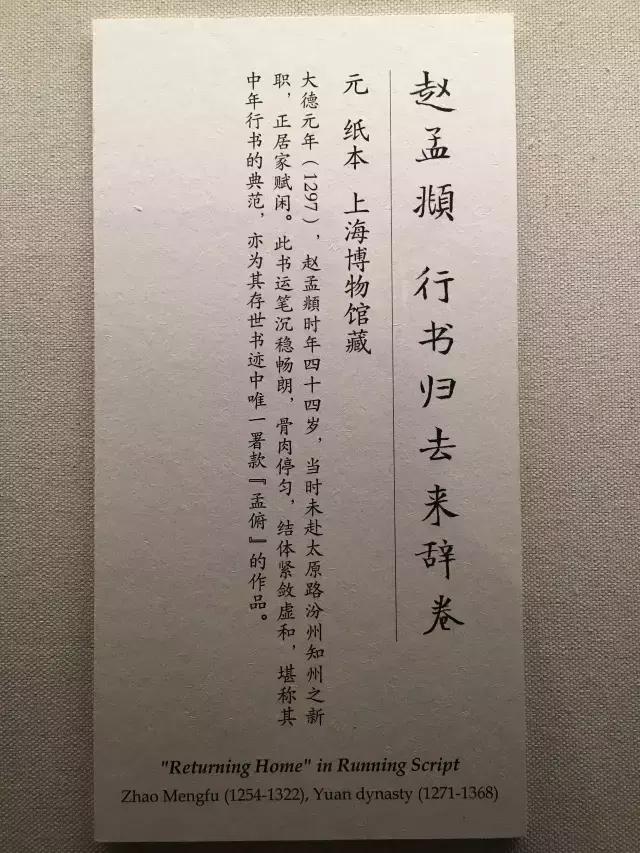 赵孟頫 行书归去来辞卷
元 纸本 上海博物馆藏
大德元年（1297），赵孟頫时年四十四岁，当时未赴太原路汾州知州之新
职，正居家赋闲。此书运笔沉稳畅朗，骨肉停匀，结体紧敛虚和，堪称其
中年行书的典范，亦为其存世书迹中唯一署款『孟俯』的作品。
"Returning Home" in Running Script
Zhao Mengfu (1254-1322), Yuan dynasty (1271-1368)